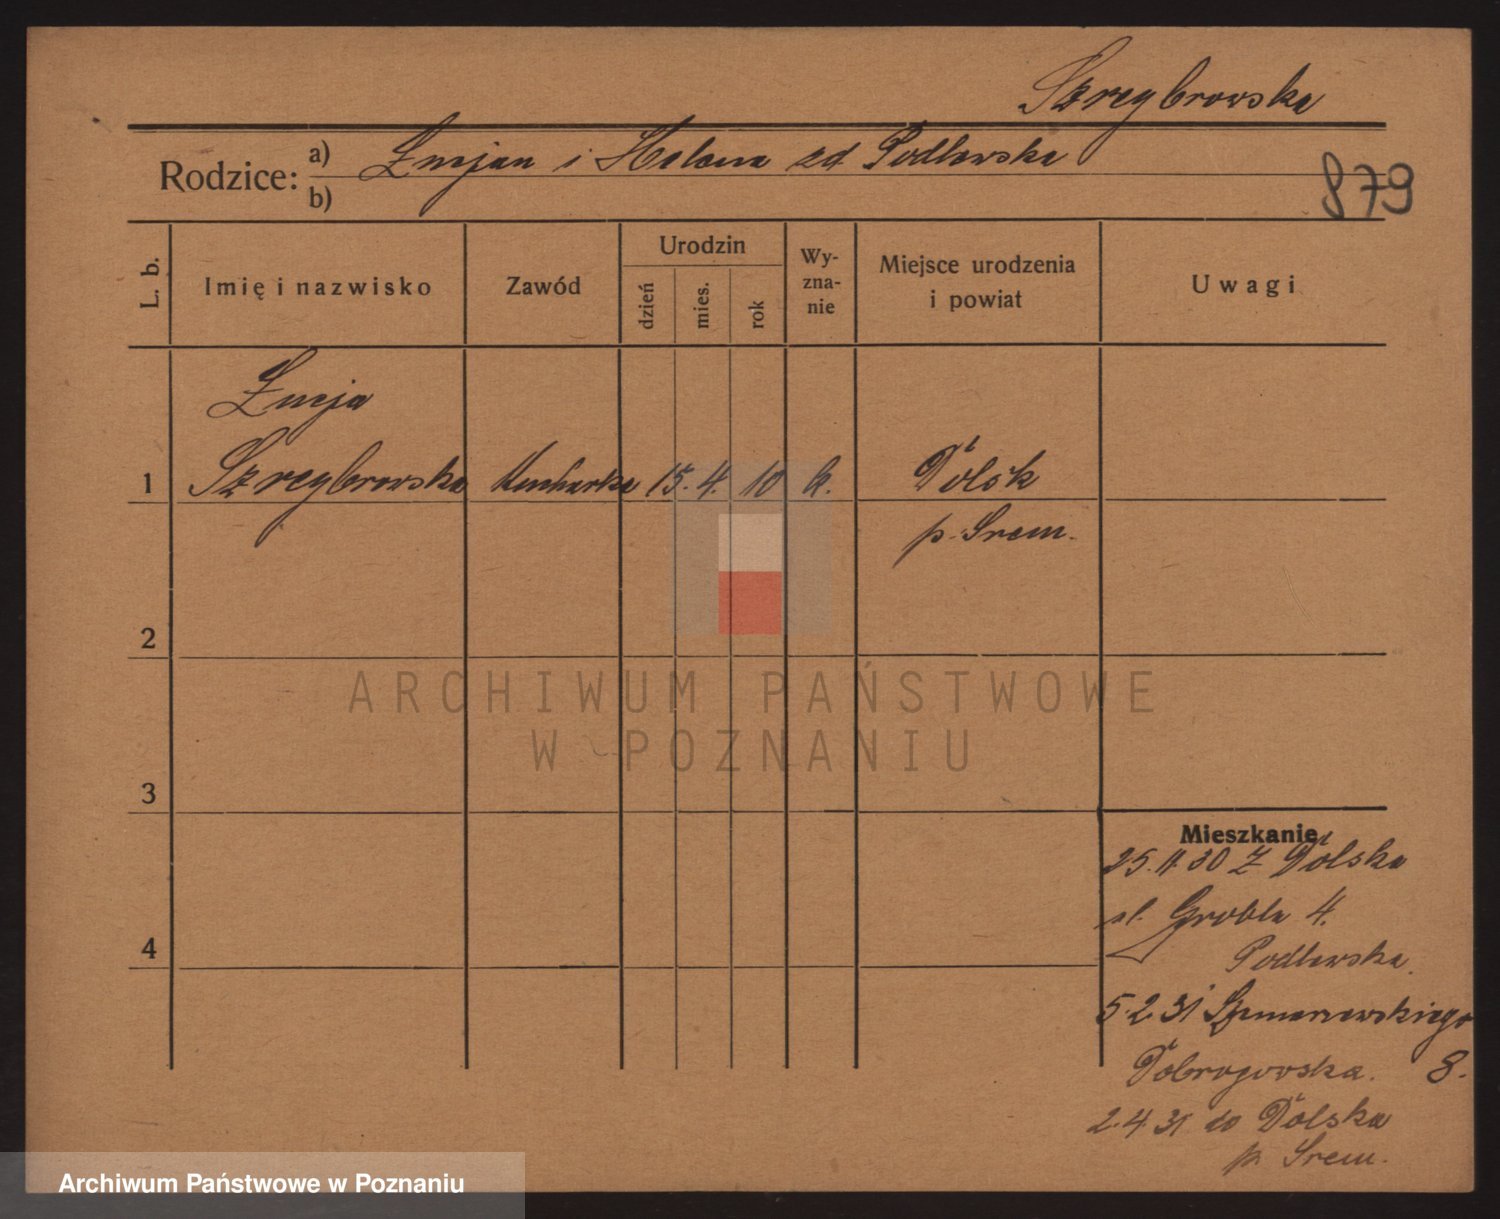 Szreybrowska
Rodzice: a) Łucjan i Helena zd Podlewska
b)
879
L. b.
Imię i nazwisko
Zawód
Urodzin
dzień
mies.
rok
Wy-
zna-
nie
Miejsce urodzenia
i powiat
Uwagi
Łucja
1 Szreybrowska Kucharka 15. 4. 10 k. Dolsk
p. Śrem.
2
3
4
Mieszkanie
25.11.30 z Dolska
ul. Grobla 4.
Podlewska.
5.2.31 Szamarzewskiego
8.
Dobrogowska.
2.4.31 do Dolska
p. Śrem.
ARCHIWUM PAŃSTWOWE
W POZNANIU
Archiwum Państwowe w Poznaniu